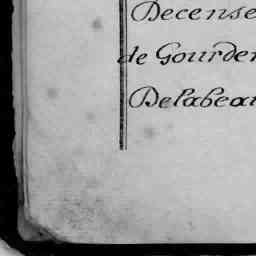 Decense
de Gourde
Delabea